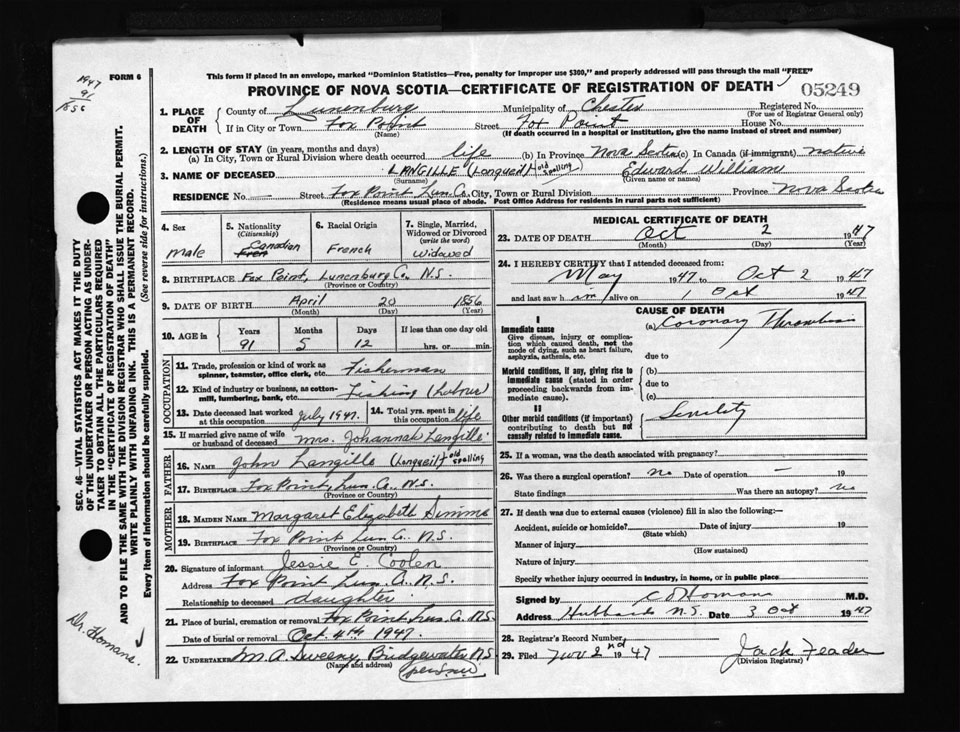 This form if placed in an envelope, marked "Dominion Statistics—Free, penalty for improper use $300," and properly addressed will pass through the mail "FREE"
FORM 6
1947
91
1856
PROVINCE OF NOVA SCOTIA—CERTIFICATE OF REGISTRATION OF DEATH
05249
1. PLACE OF DEATH
County of Lunenburg Municipality of Chester Registered No.
(For use of Registrar General only)
If in City or Town Fox Point Street Fox Point House No.
(Name) (If death occurred in a hospital or institution, give the name instead of street and number)
2. LENGTH OF STAY (in years, months and days)
(a) In City, Town or Rural Division where death occurred life (b) In Province Nova Scotia (c) In Canada (if immigrant) native
3. NAME OF DECEASED LANGILLE (Longueil) old spelling Edward William
(Surname) (Given name or names)
RESIDENCE No. Street Fox Point Lun. Co. City, Town or Rural Division Province Nova Scotia
(Residence means usual place of abode. Post Office Address for residents in rural parts not sufficient)
4. Sex
Male
5. Nationality
(Citizenship)
Canadian
6. Racial Origin
French
7. Single, Married,
Widowed or Divorced
(write the word)
Widowed
8. BIRTHPLACE Fox Point, Lunenburg Co., N.S.
(Province or Country)
9. DATE OF BIRTH April 20 1856
(Month) (Day) (Year)
10. AGE in
Years Months Days If less than one day old
91 5 12 hrs. or min.
OCCUPATION
11. Trade, profession or kind of work as
spinner, teamster, office clerk, etc. Fisherman
12. Kind of industry or business, as cotton-
mill, lumbering, bank, etc. Fishing
13. Date deceased last worked
at this occupation July 1947.
14. Total yrs. spent in
this occupation life
15. If married give name of wife
or husband of deceased Mrs. Johannah Langille
FATHER
16. NAME John Langille (Longueil) old spelling
17. BIRTHPLACE Fox Point, Lun. Co., N.S.
(Province or Country)
MOTHER
18. MAIDEN NAME Margaret Elizabeth Simms
19. BIRTHPLACE Fox Point Lun. Co. N.S.
(Province or Country)
20. Signature of informant Jessie E. Coolen
Address Fox Point Lun. Co. N.S.
Relationship to deceased daughter
21. Place of burial, cremation or removal Fox Point Lun. Co. N.S.
Date of burial or removal Oct. 4th 1947.
22. UNDERTAKER M.A. Sweeny Bridgewater N.S.
(Name and address)
MEDICAL CERTIFICATE OF DEATH
23. DATE OF DEATH Oct 2 1947
(Month) (Day) (Year)
24. I HEREBY CERTIFY that I attended deceased from:
May 1947 to Oct 2 1947
and last saw him alive on 1 Oct 1947
CAUSE OF DEATH
I
Immediate cause
Give disease, injury or complica-
tion which caused death, not the
mode of dying, such as heart failure,
asphyxia, asthenia, etc.
(a) Coronary Thrombosis
due to
Morbid conditions, if any, giving rise to
immediate cause (stated in order
proceeding backwards from im-
mediate cause).
(b)
due to
(c)
II
Other morbid conditions (if important)
contributing to death but not
causally related to immediate cause.
Senility
25. If a woman, was the death associated with pregnancy?
26. Was there a surgical operation? no Date of operation — 19
State findings Was there an autopsy? no
27. If death was due to external causes (violence) fill in also the following:—
Accident, suicide or homicide? Date of injury 19
(State which)
Manner of injury
(How sustained)
Nature of injury
Specify whether injury occurred in industry, in home, or in public place
Signed by C D Homans M.D.
Address Hubbards N.S. Date 3 Oct 1947
28. Registrar's Record Number
29. Filed Nov 2nd 1947 Jack Feader
(Division Registrar)
SEC. 46—VITAL STATISTICS ACT MAKES IT THE DUTY
OF THE UNDERTAKER OR PERSON ACTING AS UNDER-
TAKER TO OBTAIN ALL THE PARTICULARS REQUIRED
IN THE "CERTIFICATE OF REGISTRATION OF DEATH"
AND TO FILE THE SAME WITH THE DIVISION REGISTRAR WHO SHALL ISSUE THE BURIAL PERMIT.
WRITE PLAINLY WITH UNFADING INK. THIS IS A PERMANENT RECORD.
Every item of information should be carefully supplied. (See reverse side for instructions.)
Dr. Homans.